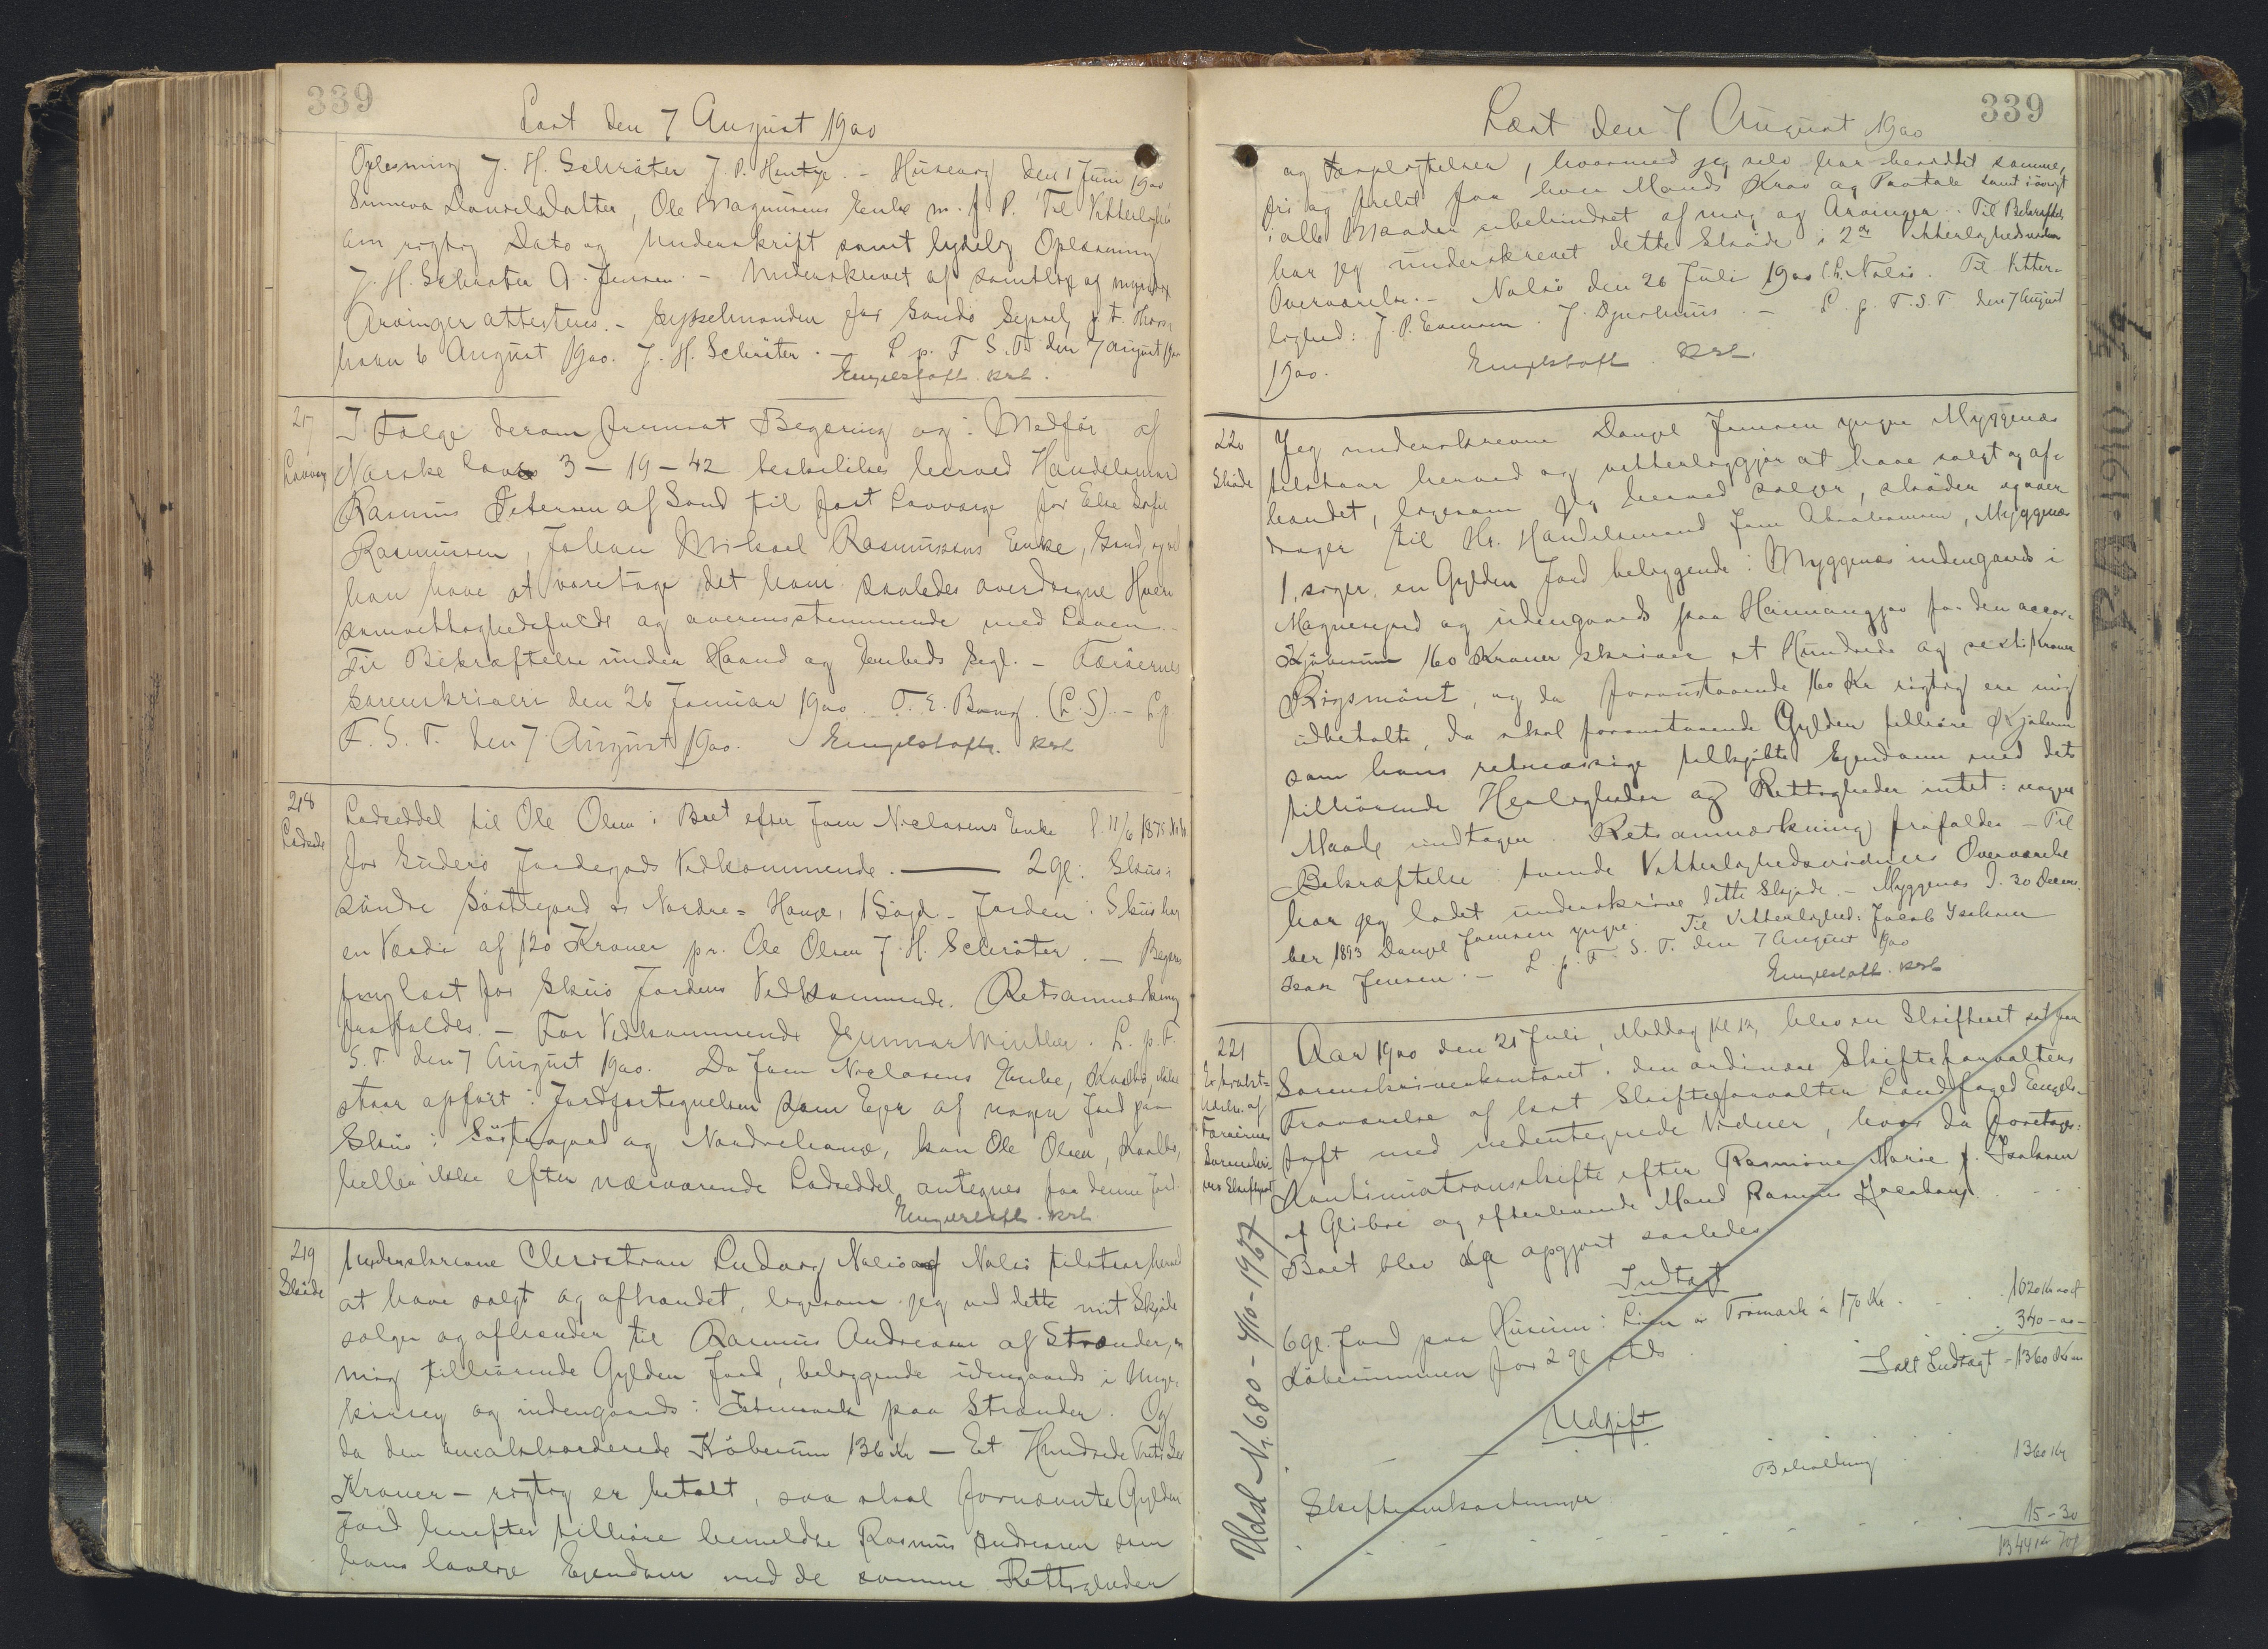 339
Læst den 7 August 1900
Oplæsning J. H. Schröter J. P. Hentze. - Husevig den 1 Juni 1900
Sunneva Danielsdatter, Ole Magnusens Enke m. f. P. Til Vitterlighed
om rigtig Dato og Underskrift samt lydelig Oplæsning
J. H. Schröter A. Jensen. - Underskrevet af samtlige og myndige
Arvinger attesteres. - Sysselmanden for Sandø Syssel, p. t. Thors-
havn 6 August 1900. J. H. Schröter. - L. p. F. S. T. den 7 August 1900
Engelstoft. kst.
217
Lavværge
I Følge derom fremsat Begæring og i Medfør af
Norske Lovs 3 - 19 - 42 beskikkes herved Handelsmand
Rasmus Petersen af Sand til fast Lavværge for Else Sofie
Rasmussen, Johan Mikael Rasmussens Enke, Sand, og vil
han have at varetage det ham saaledes overdragne Hverv
samvittighedsfuldt og overensstemmende med Loven. -
Til Bekræftelse under Haand og Embeds Segl. - Færøernes
Sorenskriveri den 26 Januar 1900. T. E. Bang. (L. S). - L. p.
F. S. T. den 7 August 1900. Engelstoft. kst
218
Lodseddel
Lodseddel til Ole Olsen i Boet efter Joen Niclasens Enke l. 11/6 1875
for Suderø Jordegods Vedkommende. - 2 gl: Skuø i
søndre Sørtegaard & Nordre-Hauge, 1 Sogd - Jorden i Skuø har
en Værdi af 120 Kroner pr. Ole Olsen J. H. Schröter. - Begæres
tinglæst for Skuø Jordens Vedkommende. Retsanmærkning
frafaldes. - For Vedkommende Gunnar Winther. L. p. F.
S. T. den 7 August 1900. Da Joen Niclasens Enke, Kvalbø, ikke
staar opført i Jordfortegnelsen som Ejer af nogen Jord paa
Skuø i Sørtegaard og Nordrehauge, kan Ole Olsen, Kvalbø,
heller ikke efter nærværende Lodseddel antegnes for denne Jord.
Engelstoft. kst.
219
Skøde
Underskrevne Christian Ludvig Nolsø af Nolsø tilstaar herved
at have solgt og afhændet, ligesom jeg ved dette mit Skjøde
sælger og afhænder til Rasmus Andreasen af Strænder, en
mig tilhørende Gylden Jord, beliggende udengaards i
og indengaards i Østmark paa Strænder. Og
da den accorderede Købesum 136 Kr - Et Hundrede Treti Sex
Kroner - rigtig er betalt, saa skal fornævnte Gylden
Jord herefter tilhøre bemeldte Rasmus Andreasen som
hans lovlige Ejendom med de samme Rettigheder
339
Læst den 7 August 1900
og Forpligtelser, hvormed jeg selv har besiddet samme,
fri og frelst for hver Mands Krav og Paatale samt iøvrigt
i alle Maader ubehindret af mig og Arvinger. Til Bekræftelse
har jeg underskrevet dette Skøde i 2de Vitterlighedsvidners
Overværelse. - Nolsø den 26 Juli 1900 Ch. Nolsø. Til Vitter-
lighed: J. P. Evensen. J. Djurhuus. - L. p. F. S. T. den 7 August
1900. Engelstoft kst.
220
Skøde
Jeg underskrevne Daniel Joensen yngre Myggenæs
tilstaar herved og vitterliggjør at have solgt og af-
hændet, ligesom jeg herved sælger, skøder og over
drager til Hr. Handelsmand Joen Abrahamsen, Myggenæs
1, siger, en Gylden Jord beliggende i Myggenæs indengaards i
og udengaards paa for den accor-
Kjøbesum 160 Kroner skriver et Hundrede og sexti Kroner
Rigsmønt, og da foranstaaende 160 Kr rigtig ere mig
udbetalte, da skal foranstaaende Gylden tilhøre Kjøberen
som hans retmæssige tilkjøbte Ejendom med dets
tilhørende Herligheder og Rettigheder intet i nogen
Maade undtagen. Retsanmærkning frafaldes - Til
Bekræftelse i tvende Vitterlighedsvidners Overværelse
har jeg ladet underskrive dette Skjøde. - Myggenæs d. 30 Decem-
ber 1893 Daniel Joensen yngre. Til Vitterlighed: Jacob Isaksen
Isak Jensen. - L. p. F. S. T. den 7 August 1900
Engelstoft. kst
221
Extrakt-
Udskr. af
Færøernes
Sorenskri-
vers Skifteprot
Aar 1900 den 21 Juli, Middag Kl 12, blev en Skifteret sat paa
Sorenskriverkontoret i den ordinære Skifteforvalters
Fraværelse af kst Skifteforvalter Landfoged Engels-
toft med nedentegnede Vidner, hvor da foretoges:
Kontinuationsskifte efter Rasmine Marie f. Isaksen
af Glibre og efterlevende Mand Rasmus Jacobsen.
Boet blev da opgjort saaledes
Indtægt
6 gl. Jord paa Husum i Lien & Tromark à 170 Kr. 1020 Kr
Købesummen for 2 gl stds 340 - 00 -
Ialt Indtægt - 1360 Kr
Udgift
Beholdning 1360 Kr
Skifteomkostninger 15 - 30
1344 Kr 70
Udsl Nr. 680 - 4/10 - 1967